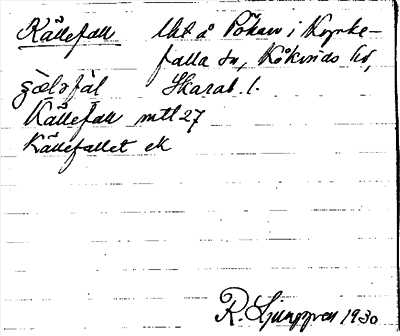 Källefall Utt å Tokan i Kyrke-
falla sn, Kåkinds hd,
Skarab. l.
Källefall mtl 27
Källefallet ek
R. Ljunggren 1930